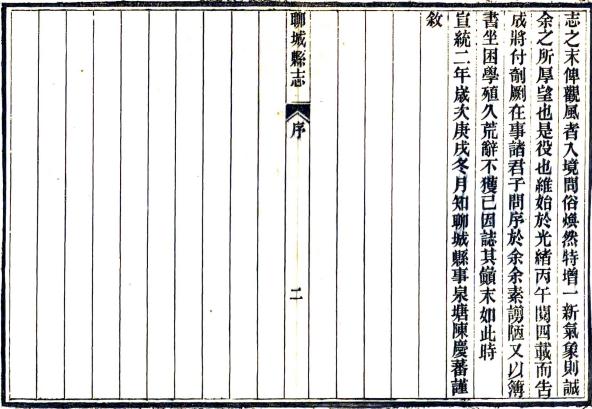 志之末俾觀風者入境問俗煥然特增一新氣象則誠
余之所厚望也是役也維始於光緒丙午閱四載而告
成將付剞劂在事諸君子問序於余余素謭陋又以簿
書坐困學殖久荒辭不獲已因誌其顚末如此時
宣統二年歲次庚戌冬月知聊城縣事泉塘陳慶蕃謹
敘
聊城縣志
序
二